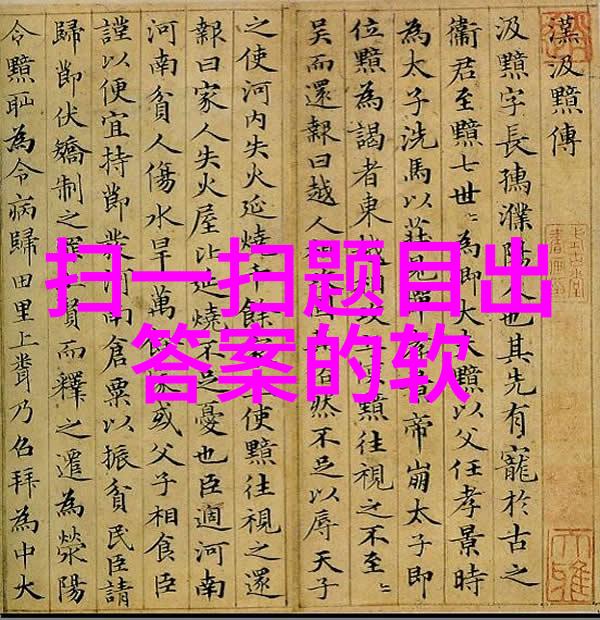 漢汲黯傳
汲黯字長孺濮陽人也其先有寵於古之
衛君至黯七世〻為卿大夫黯以父任孝景時
為太子洗馬以莊見憚帝崩太子即
位黯為謁者東越相攻黯往視之不至〻
吳而還報曰越人相然不足以辱天子
之使河內失火延燒千餘家使黯往視之還
報曰家人失火屋比延燒不足憂也臣適河南
河南貧人傷水旱萬家或父子相食臣
謹以便宜持節發河南倉粟以振貧民臣請
歸節伏矯制之罪上賢而釋之遷為滎陽
令黯恥為令病歸田里上聞乃召拜為中大
扫一扫题目出
答案的软